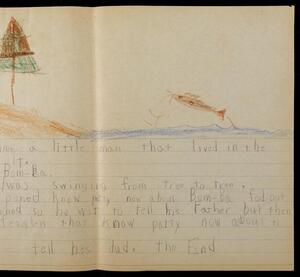 a little man that lived in the
Bom-Ba.
was swinging from tree to tree.
poned know party now about Bom-Ba fad out
so he wit to tell his Father but then
that know party now about
tell his dad. the End